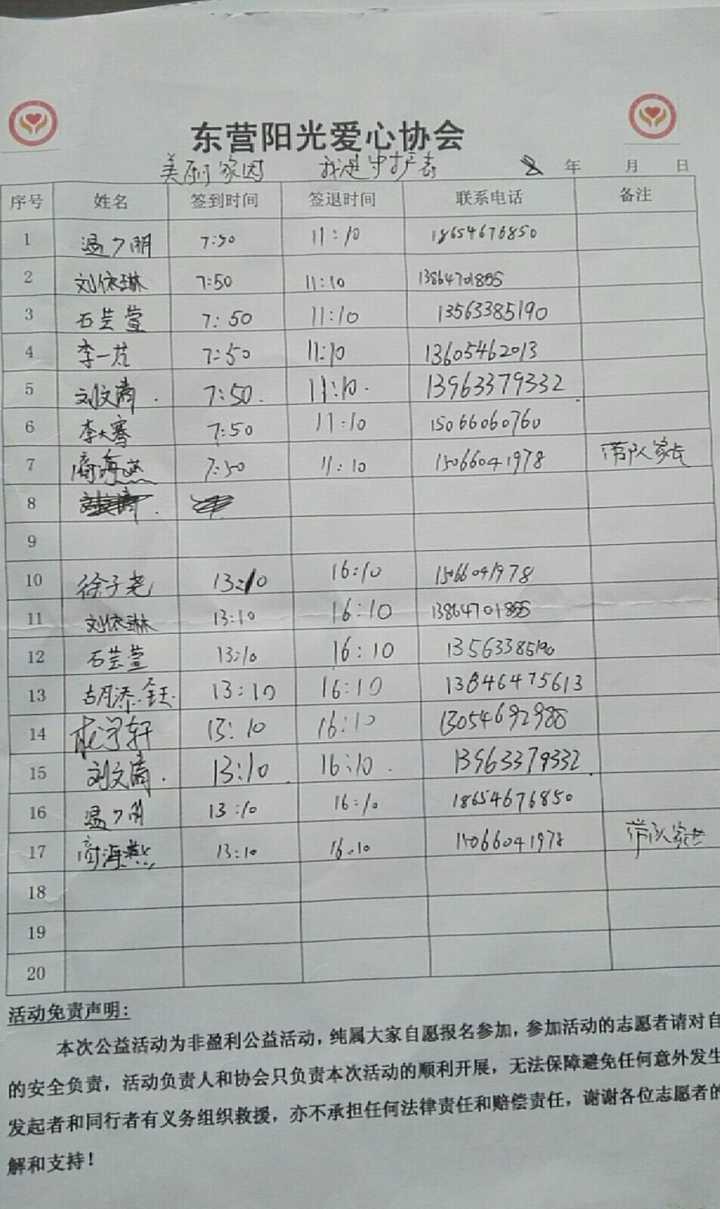 东营阳光爱心协会
美丽家园 我是守护者 年 月 日
序号 姓名 签到时间 签退时间 联系电话 备注
1 7:50 11:10 18654676850
2 刘依琳 7:50 11:10 13864701855
3 石芸萱 7:50 11:10 13563385190
4 李一芃 7:50 11:10 13605462013
5 刘文涛 7:50 11:10 13963379332
6 李大骞 7:50 11:10 15066060760
7 商海燕 7:50 11:10 15066041978 带队家长
8
9
10 徐子尧 13:10 16:10 15066041978
11 刘依琳 13:10 16:10 13864701855
12 石芸萱 13:10 16:10 13563385190
13 胡添钰 13:10 16:10 13846475613
14 13:10 16:10 13054692988
15 刘文涛 13:10 16:10 13963379332
16 13:10 16:10 18654676850
17 商海燕 13:10 16:10 15066041978 带队家长
18
19
20
活动免责声明:
本次公益活动为非盈利公益活动，纯属大家自愿报名参加，参加活动的志愿者请对自
的安全负责，活动负责人和协会只负责本次活动的顺利开展，无法保障避免任何意外发生
发起者和同行者有义务组织救援，亦不承担任何法律责任和赔偿责任，谢谢各位志愿者的
解和支持！